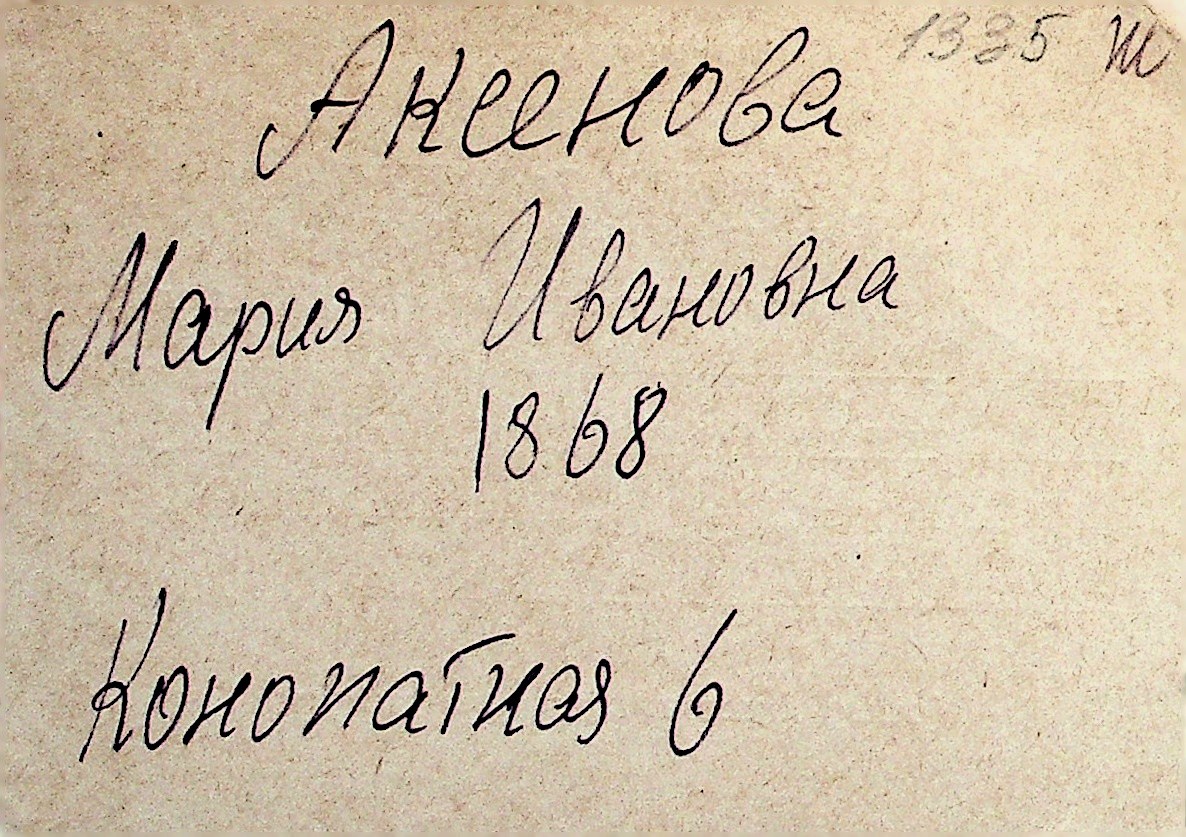 1335
Аксенова
Мария Ивановна
1868
Конопатная 6